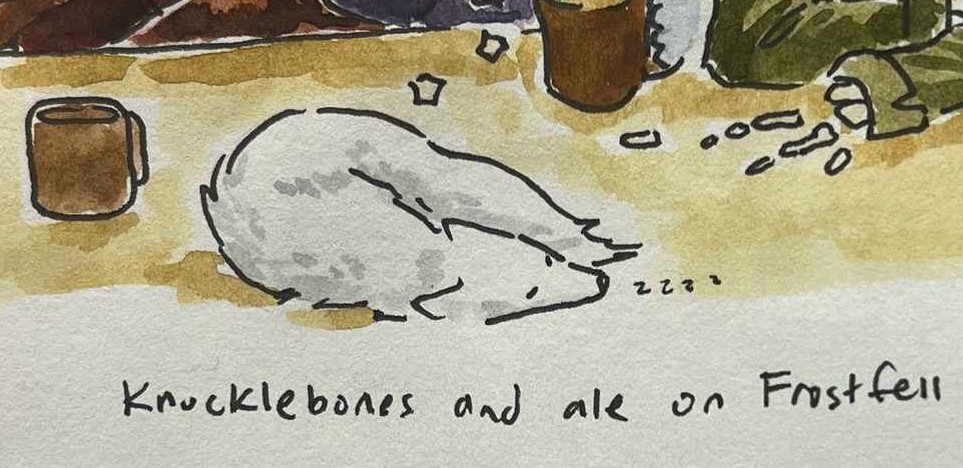 z z z z
Knucklebones and ale on Frostfell